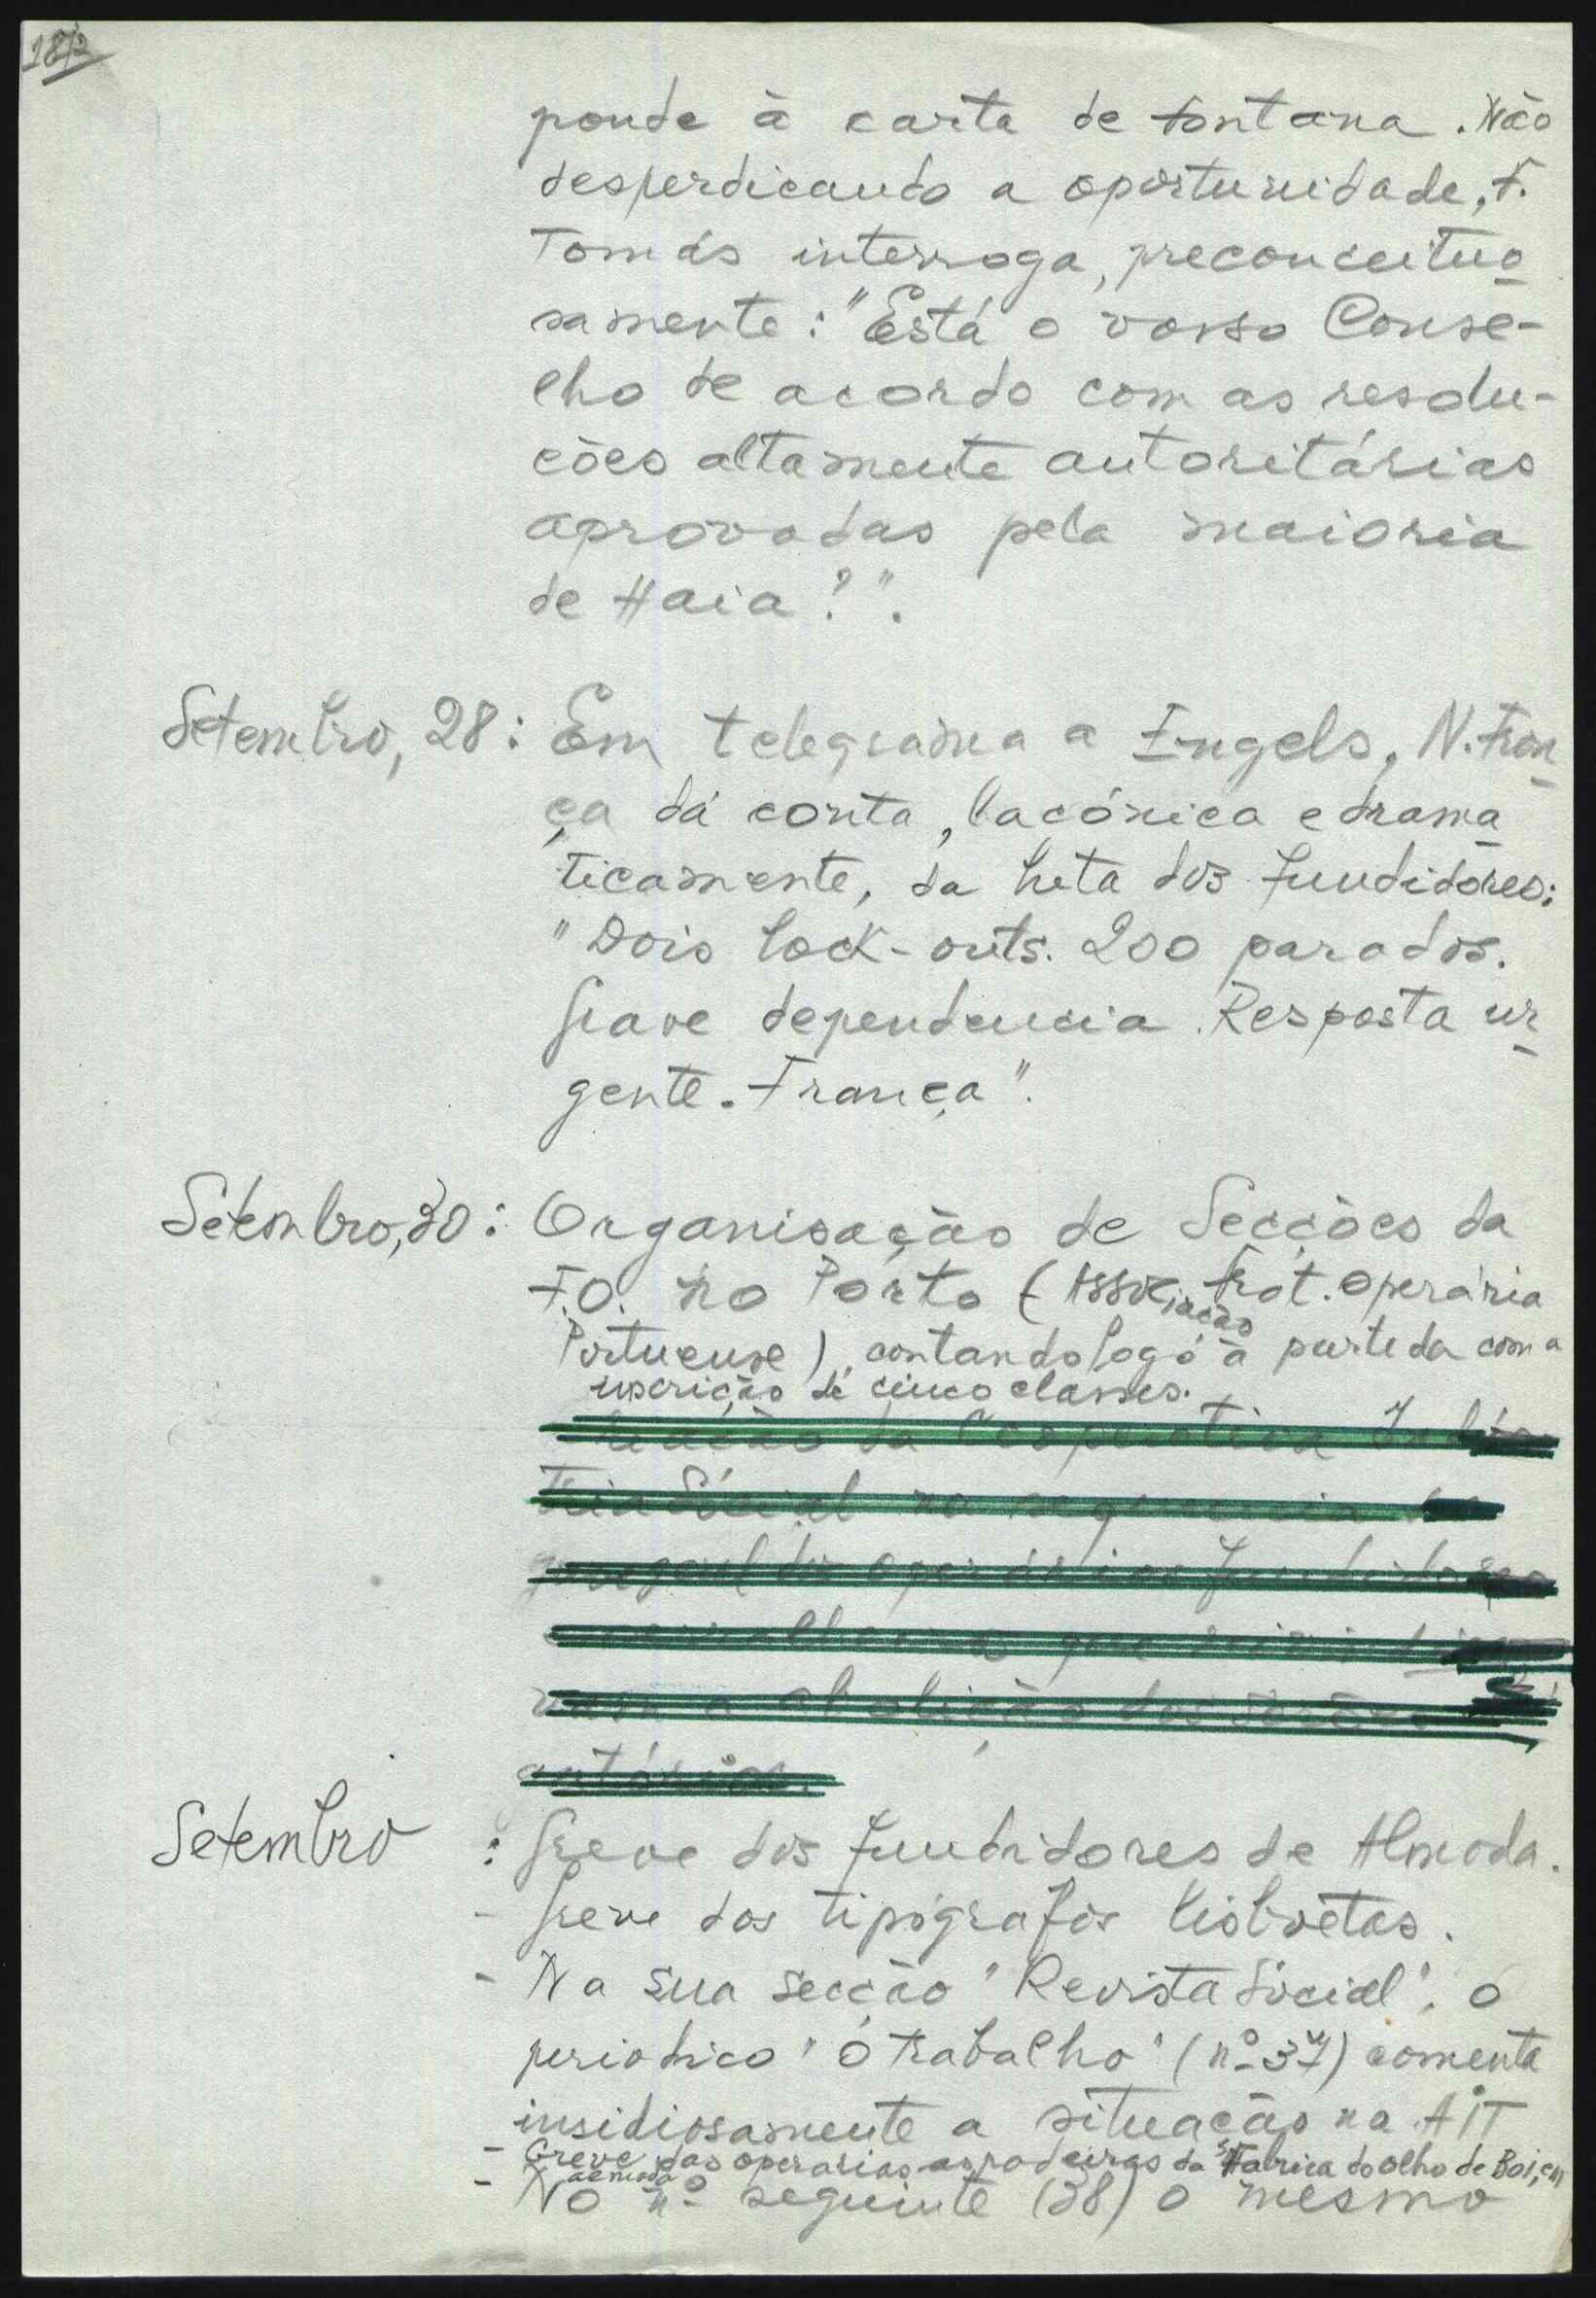 187
ponde à carta de Fontana. Não
desperdicando a oportunidade, F.
Tomás interroga, preconceituo
samente: "Está o vosso Conse-
lho de acordo com as resolu-
ções altamente autoritárias
aprovadas pela maioria
de Haia?".
Setembro, 28: Em telegrama a Engels, N. Fran
ça dá conta, lacónica e drama
ticamente, da luta dos fundidores:
"Dois lock-outs. 200 parados.
Grave dependencia. Resposta ur
gente. França".
Setembro, 30: Organisação de Secções da
F.O. no Porto (Associação Frat. Operária
Portuense), contando logo à partida com a
inscrição de cinco classes.
criação da Cooperativa Indús
tria Social na sequencia
Setembro : Greve dos fundidores de Almada.
- Greve dos tipógrafos lisboetas.
- Na sua secção "Revista Social", o
periodico "O Trabalho" (nº 37) comenta
insidiosamente a situação na AIT
- Greve das operarias da Fabrica do Olho de Boi, em
Almada
- No nº seguinte (38) o mesmo